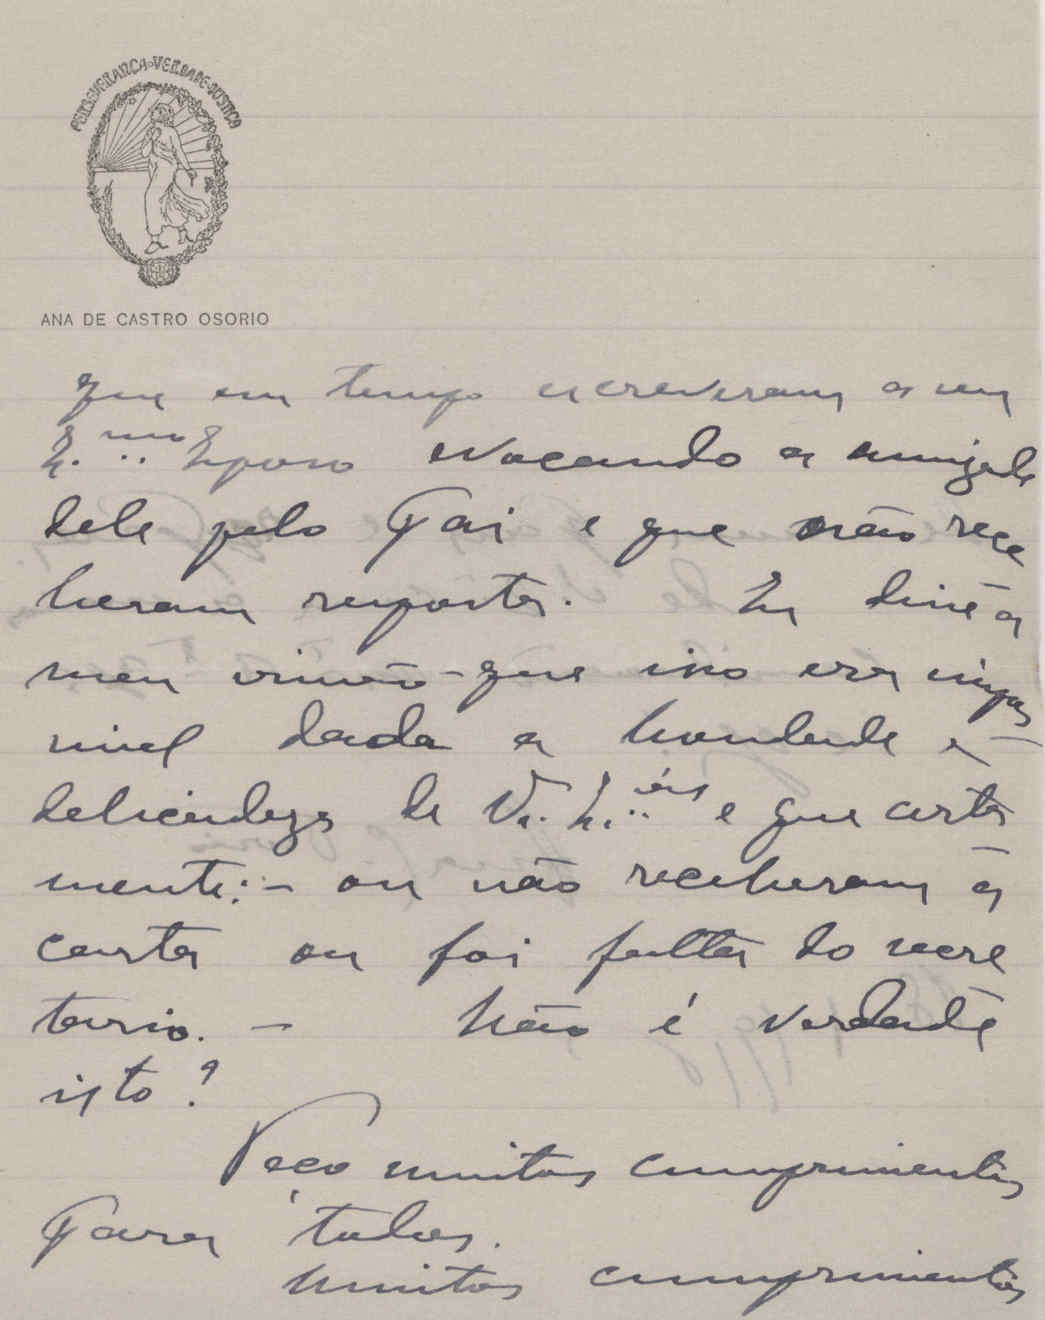 PERSEVERANCA·VERDADE·JUSTICA
ANA DE CASTRO OSORIO
que em tempo escreveram a seu
E.mo Esposo evocando a amizade
dele pelo Pai e que não rece
beram resposta. Eu disse a
meu irmão - que isso era impos
sivel dada a bondade e
delicadeza de V. E.as e que certa
mente: - ou não receberam a
carta ou foi falta do secre
tario. - Não é verdade
isto?
Peço muitos cumprimentos
para todos.
Muitos cumprimentos